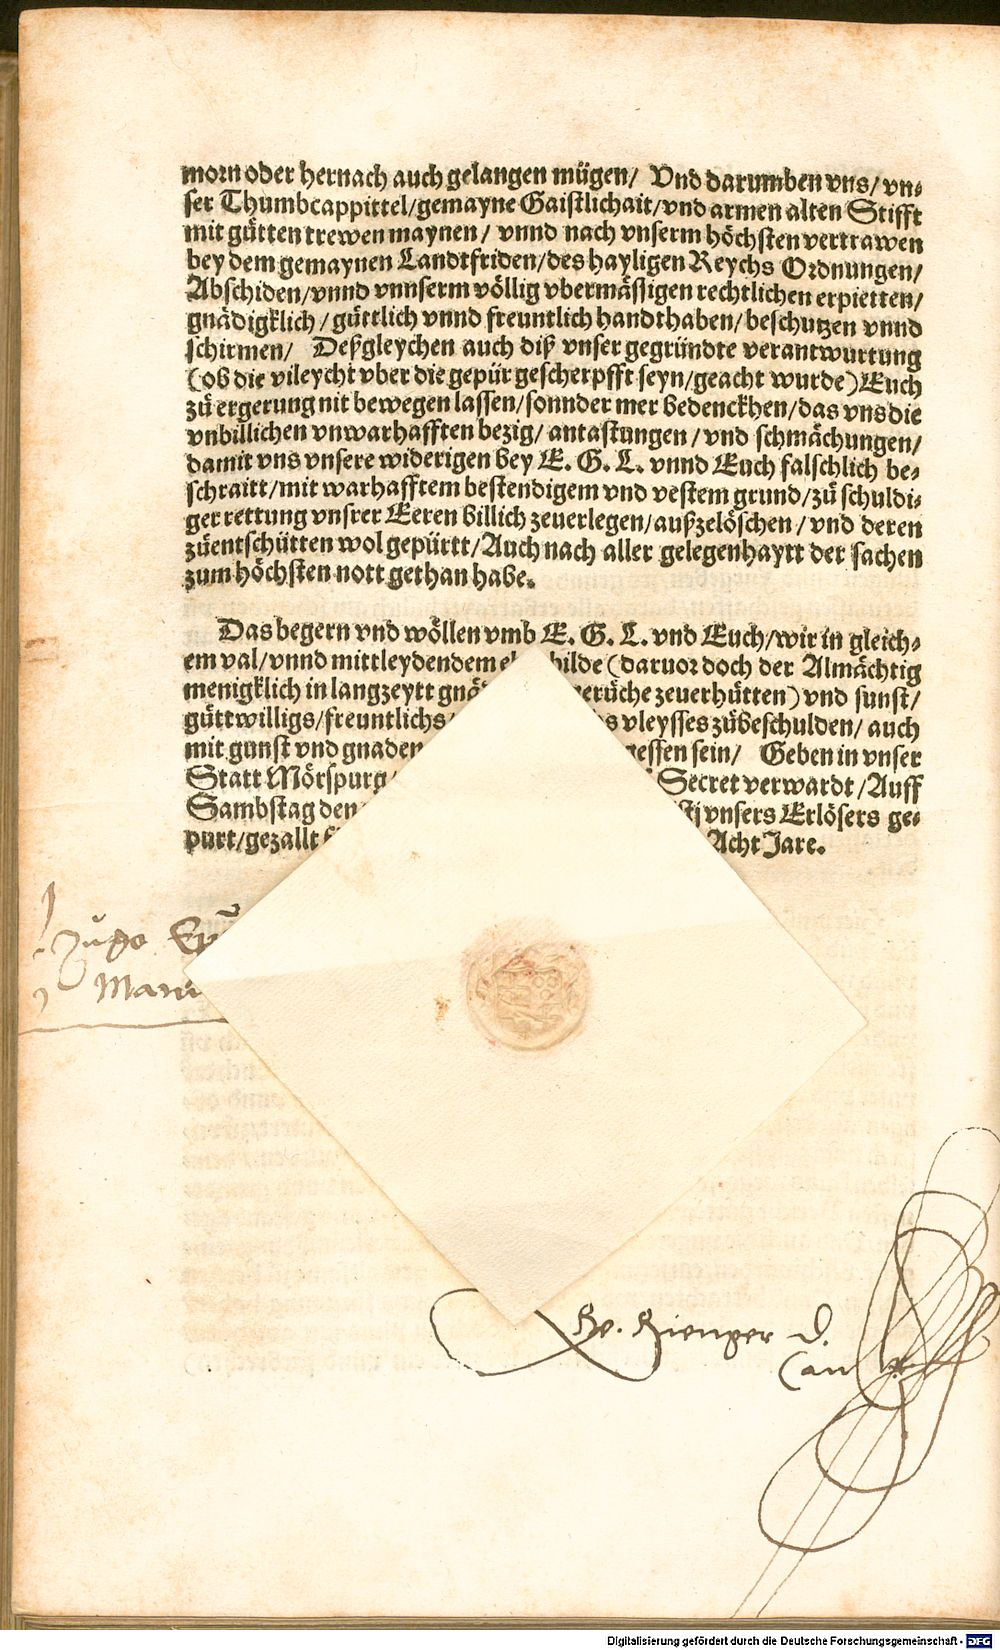 morn oder hernach auch gelangen mügen/ Vnd darumben vns/ vn⸗
ser Thumbcappittel/gemayne Gaistlichait/vnd armen alten Stifft
mit gůtten trewen maynen/ vnnd nach vnserm höchsten vertrawen
bey dem gemaynen Landtfriden/des hayligen Reychs Ordnungen/
Abschiden/vnnd vnnserm völlig vbermässigen rechtlichen erpietten/
gnädigklich/gůttlich vnnd freuntlich handthaben/beschutzen vnnd
schirmen/ Deßgleychen auch diß vnser gegründte verantwurtung
(ob die vileycht vber die gepür gescherpfft seyn/geacht wurde) Euch
zů ergerung nit bewegen lassen/sonnder mer bedenckhen/das vns die
vnbillichen vnwarhafften bezig/ antastungen/vnd schmächungen/
damit vns vnsere widerigen bey E. G. L. vnnd Euch falschlich be⸗
schraitt/mit warhafftem bestendigem vnd vestem grund/zů schuldi⸗
ger rettung vnsrer Eeren billich zeuerlegen/außzelöschen/vnd deren
zůentschütten wol gepürtt/Auch nach aller gelegenhaytt der sachen
zum höchsten nott gethan habe.
Das begern vnd wöllen vmb E. G. L. vnd Euch/wir in gleich⸗
em val/vnnd mittleydendem bilde (daruor doch der Almächtig
menigklich in langzeytt gerůche zeuerhütten) vnd sunst/
gůttwilligs/freuntlichs vleysses zůbeschulden/ auch
mit gunst vnd gnaden gessen sein/ Geben in vnser
Statt Mörspurg/ Secret verwardt/Auff
Sambstag den vnsers Erlösers ge⸗
purt/gezallt Acht Jare.
Hugo
Manu
Rienger D.
Can
Digitalisierung gefördert durch die Deutsche Forschungsgemeinschaft - DFG